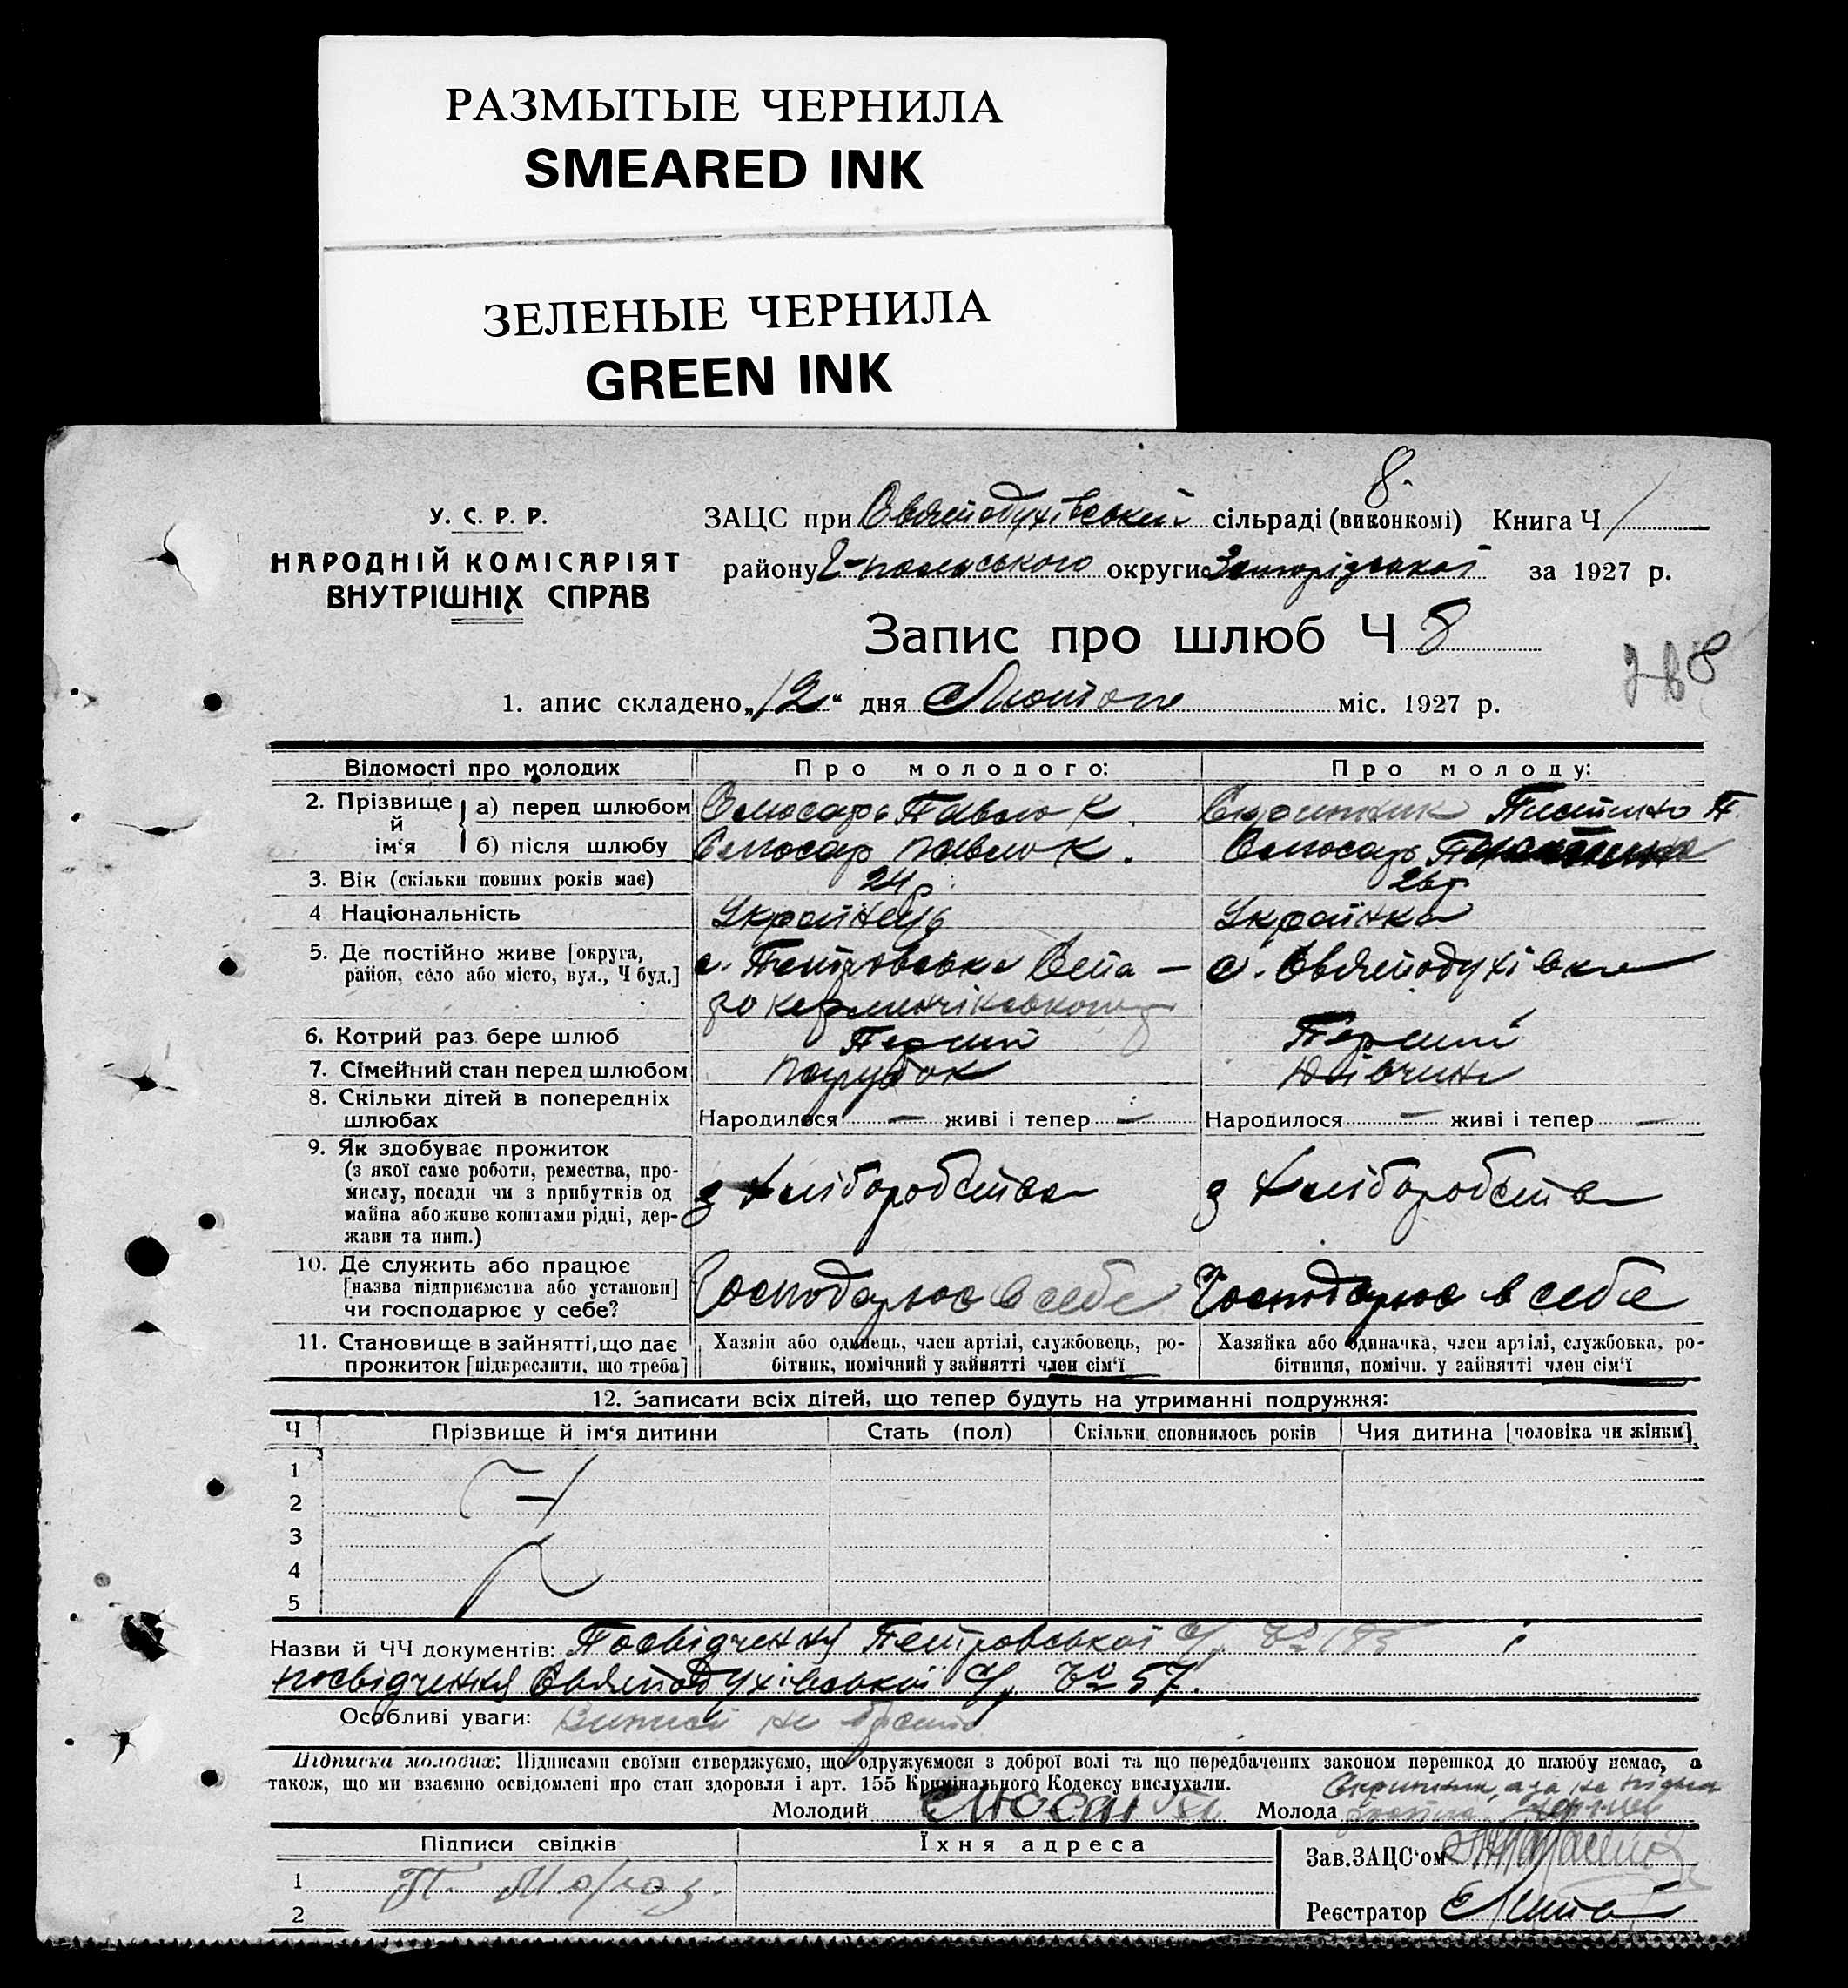 РАЗМЫТЫЕ ЧЕРНИЛА
SMEARED INK
ЗЕЛЕНЫЕ ЧЕРНИЛА
GREEN INK
8.
У. С. Р. Р.
НАРОДНІЙ КОМІСАРІЯТ
ВНУТРІШНІХ СПРАВ
ЗАЦС при Святодухівській сільраді (виконкомі) Книга Ч 1
району Г-польського округи Запорізької за 1927 р.
Запис про шлюб Ч 8
1. апис складено „12“ дня Лютого міс. 1927 р.
Відомості про молодих Про молодого: Про молоду:
2. Прізвище й ім‘я а) перед шлюбом Слюсарь Павло К. Скрипник П.
б) після шлюбу Слюсар Павло К. Слюсарь
3. Вік (скільки повних років має) 24 р. 26 р
4 Національність Українець Українка
5. Де постійно живе [округа, район, село або місто, вул., Ч буд.] с. Петровська с. Святодухівка
6. Котрий раз бере шлюб Перший Перший
7. Сімейний стан перед шлюбом парубок дівчина
8. Скільки дітей в попередніх шлюбах Народилося — живі і тепер — Народилося — живі і тепер —
9. Як здобуває прожиток з хліборобства з хліборобства
(з якої саме роботи, ремества, про-
мислу, посади чи з прибутків од
майна або живе коштами рідні, дер-
жави та инш.)
10. Де служить або працює Господарює в себе Господарює в себе
[назва підприємства або установи]
чи господарює у себе?
11. Становище в зайнятті, що дає Хазяїн або одинець, член артілі, службовець, ро- Хазяйка або одиначка, член артілі, службовка, ро-
прожиток [підкреслити, що треба] бітник, помічний у зайнятті член сім‘ї бітниця, помічн. у зайнятті член сім‘ї
12. Записати всіх дітей, що тепер будуть на утриманні подружжя:
Ч Прізвище й ім‘я дитини Стать (пол) Скільки сповнилось років Чия дитина [чоловіка чи жінки]
1
2
3
4
5
Назви й ЧЧ документів: Посвідчення Петровської с/р
посвідчення Святодухівської с/р № 57.
Особливі уваги: не
Підписка молодих: Підписами своїми стверджуємо, що одружуємося з доброї волі та що передбачених законом перешкод до шлюбу немає, а
також, що ми взаємно освідомлені про стан здоровля і арт. 155 Кримінального Кодексу вислухали.
Молодий Слюсар Молода
Підписи свідків Їхня адреса
Зав. ЗАЦС‘ом
1 П. Мороз
Реєстратор
2